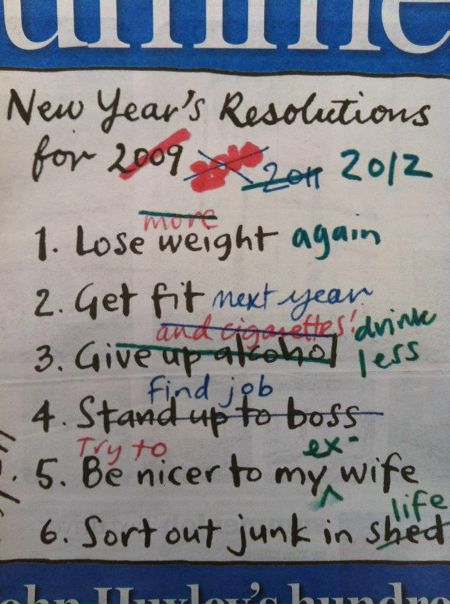 New Year's Resolutions
for 2009 2011 2012
more
1. Lose weight again
2. Get fit next year
and cigarettes! drink
3. Give up alcohol less
find job
4. Stand up to boss
Try to ex-
5. Be nicer to my wife
life
6. Sort out junk in shed
John Huxley's hundre